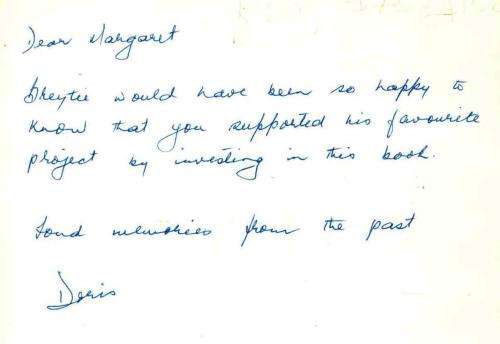 Dear Margaret
Dreytie would have been so happy to
know that you supported his favourite
project by investing in this book.
Fond memories from the past
Doris